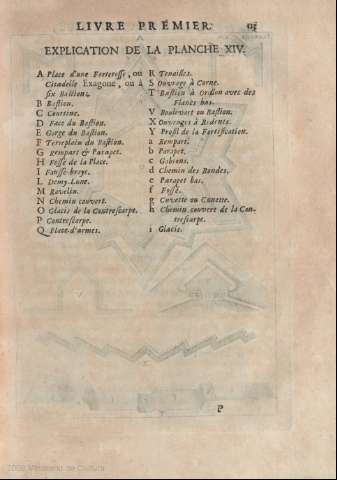 LIVRE PRÉMIER. 113
EXPLICATION DE LA PLANCHE XIV.
A Place d'une Forteresse, ou
Citadelle Exagone, ou à
six Bastions.
B Bastion.
C Courtine.
D Face du Bastion.
E Gorge du Bastion.
F Terreplain du Bastion.
G Rempart & Parapet.
H Fossé de la Place.
I Fausse-braye.
L Demy-Lune.
M Ravelin.
N Chemin couvert.
O Glacis de la Contrescarpe.
P Contrescarpe.
Q Place-d'armes.
R Tenailles.
S Ouvrage à Corne.
T Bastion à Orillon avec des
Flancs bas.
V Boulevart ou Bastion.
X Ouvrages à Redents.
Y Profil de la Fortification.
a Rempart.
b Parapet.
c Gabions.
d Chemin des Rondes.
e Parapet bas.
f Fossé.
g Cuvette ou Cunette.
h Chemin couvert de la Con-
trescarpe.
i Glacis.
P
2009 Ministerio de Cultura